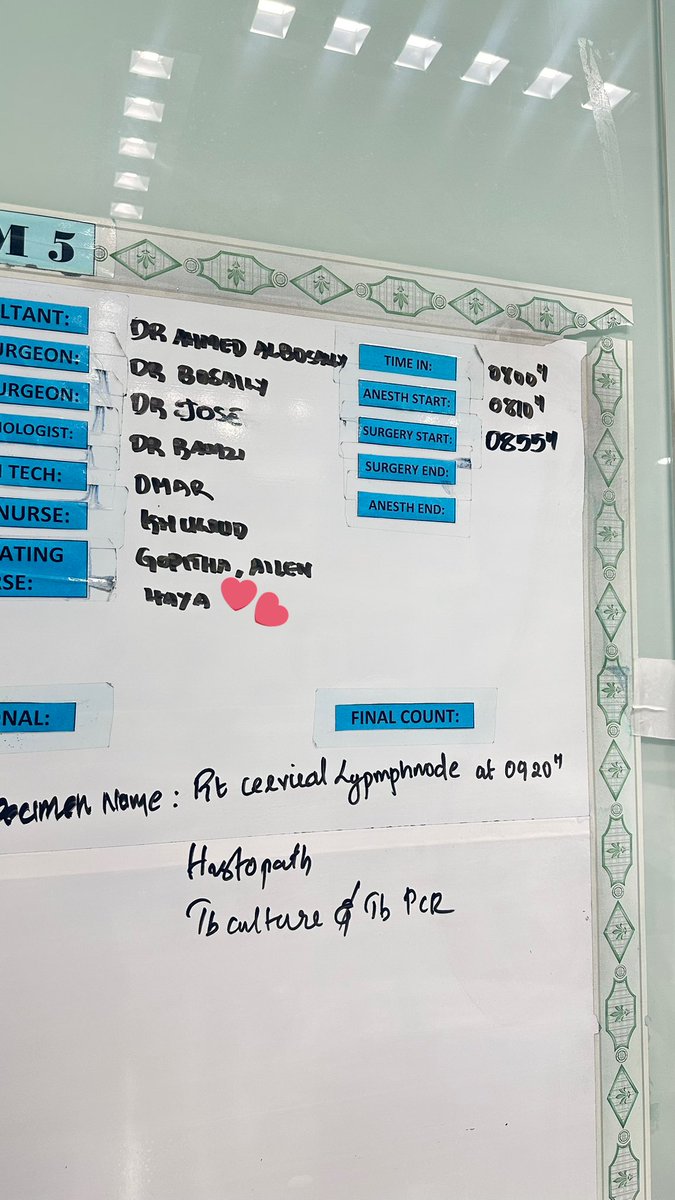 M 5
LTANT: DR AHMED ALBOSAILY TIME IN: 0800H
URGEON: DR BOSAILY ANESTH START: 0810H
URGEON: DR JOSE SURGERY START: 0855H
IOLOGIST: DR RAMZI SURGERY END:
TECH: OMAR ANESTH END:
NURSE: KHULOUD
ATING GOPITHA, AILEN
SE: HAYA
NAL: FINAL COUNT:
pecimen Name : Rt cervical Lypmphnode at 0920H
Hastopath
Tb culture & Tb PCR